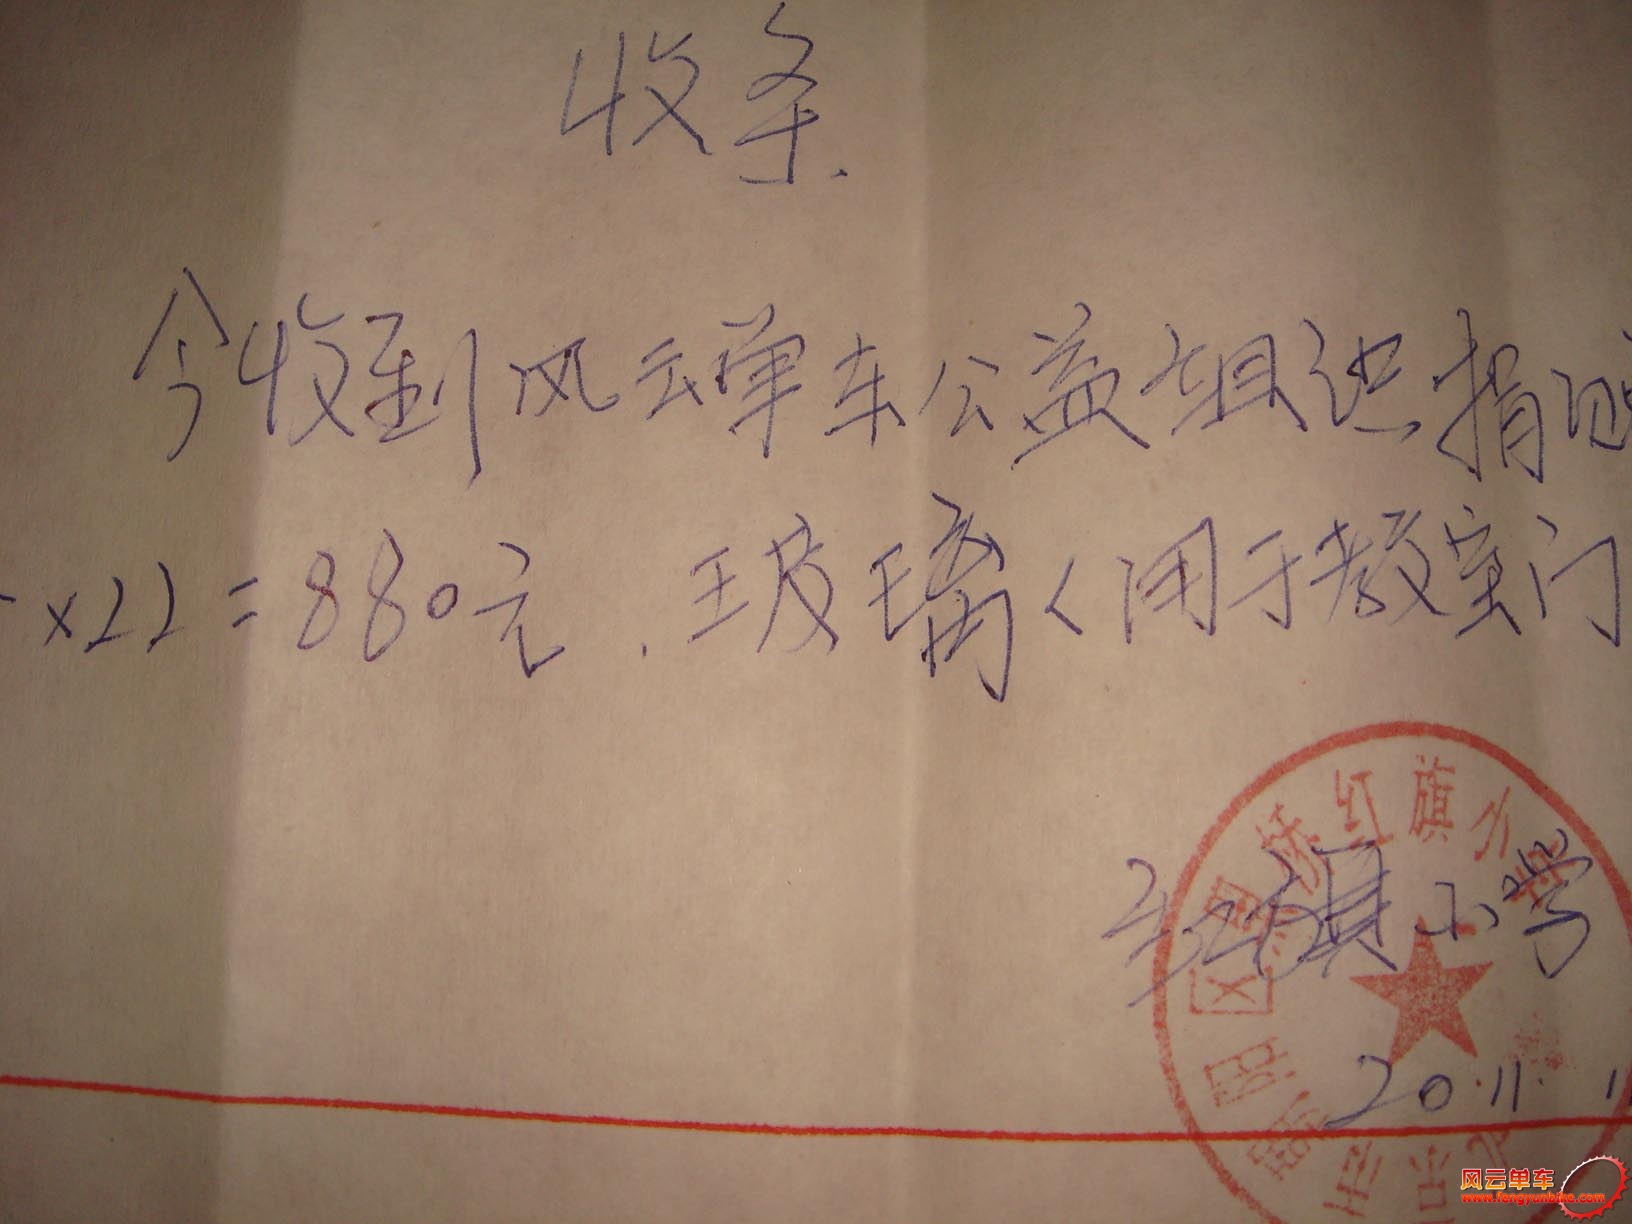 收条.
今收到风云单车公益组织捐赠
×22=880元.玻璃(用于教室门
红旗小学
2011.1
红旗小学
风云单车
www.fengyunbike.com